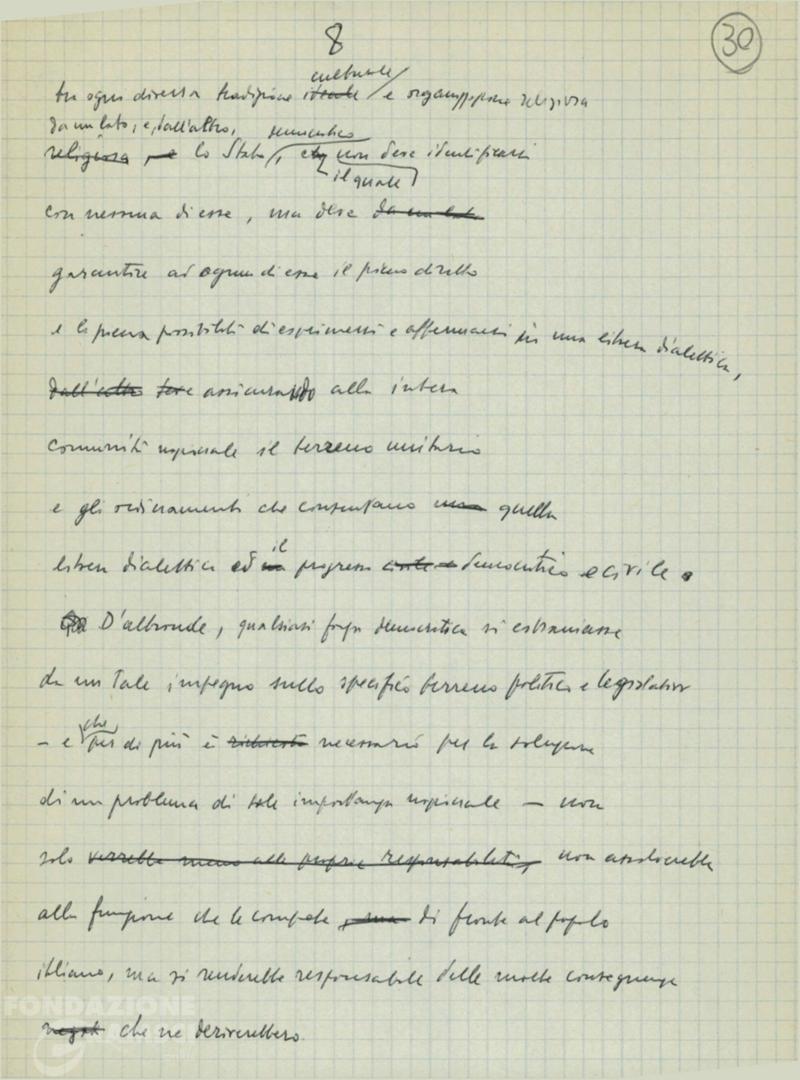 8
30
culturale
tra ogni diversa tradizione ideale e organizzazione religiosa
da un lato, e, dall'altro, democratico
religiosa, e lo Stato, che non deve identificarsi
il quale
con nessuna di esse, ma deve da un lato
garantire ad ognuna di esse il pieno diritto
e la piena possibilità di esprimersi e affermarsi in una libera dialettica,
dall'altro deve assicurando alla intera
comunità nazionale il terreno unitario
e gli ordinamenti che consentano una quella
il
libera dialettica ed un progresso democratico e civile.
D'altronde, qualsiasi forza democratica si estraniasse
da un tale impegno sullo specifico terreno politico e legislativo
che
– e per di più è richiesto necessario per la soluzione
di un problema di tale importanza nazionale – non
solo verrebbe meno alle proprie responsabilità, non assolverebbe
alla funzione che le compete, ma di fronte al popolo
italiano, ma si renderebbe responsabile delle molte conseguenze
negat che ne deriverebbero.
FONDAZIONE